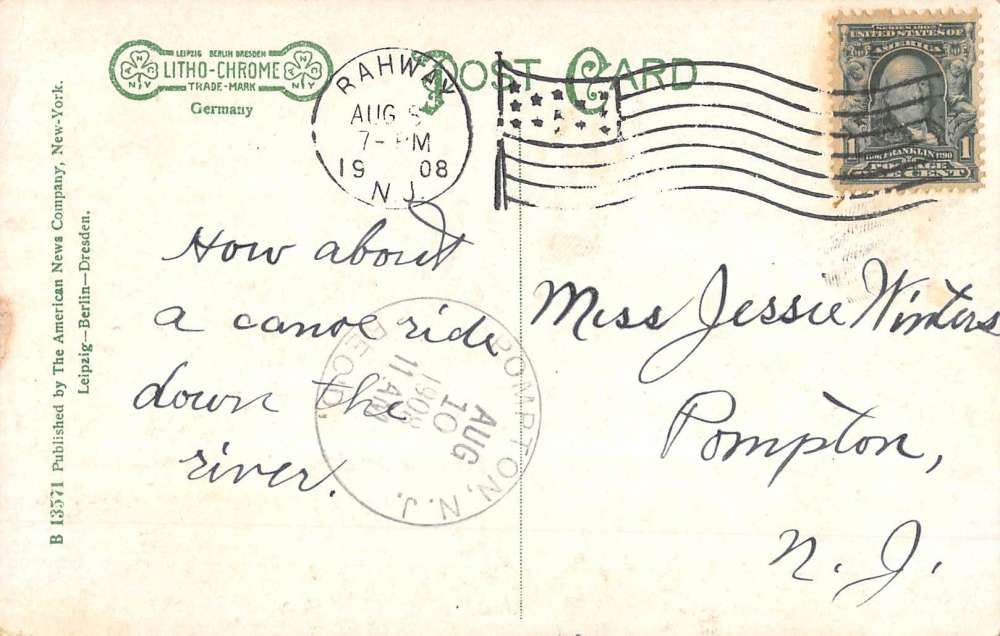 LEIPZIG BERLIN DRESDEN
LITHO-CHROME
TRADE-MARK
Germany
POST CARD
RAHWAY
AUG
7-PM
19 08
N.J.
SERIES 1902
UNITED STATES OF
AMERICA
1 FRANKLIN 1790 1
POSTAGE
ONE CENT
How about
a canoe ride
down the
river.
Miss Jessie Winters
Pompton,
N. J.
POMPTON, N.J.
AUG
10
11 AM
1908
REC'D.
B 13571 Published by The American News Company, New-York.
Leipzig—Berlin—Dresden.